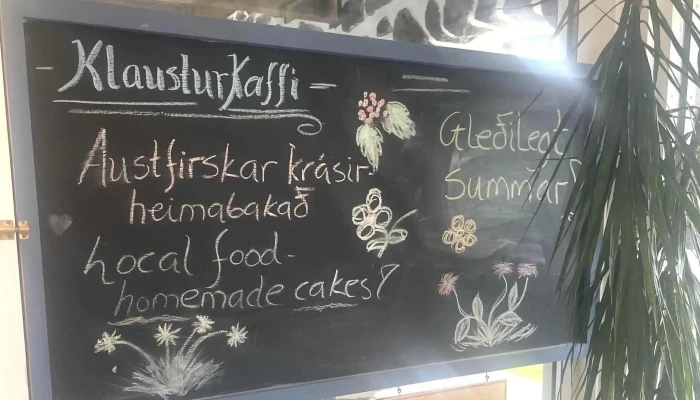 - Klausturkaffi -
Austfirskar krásir-
heimabakað
Local food-
homemade cakes!
Gleðilegt
Summar!